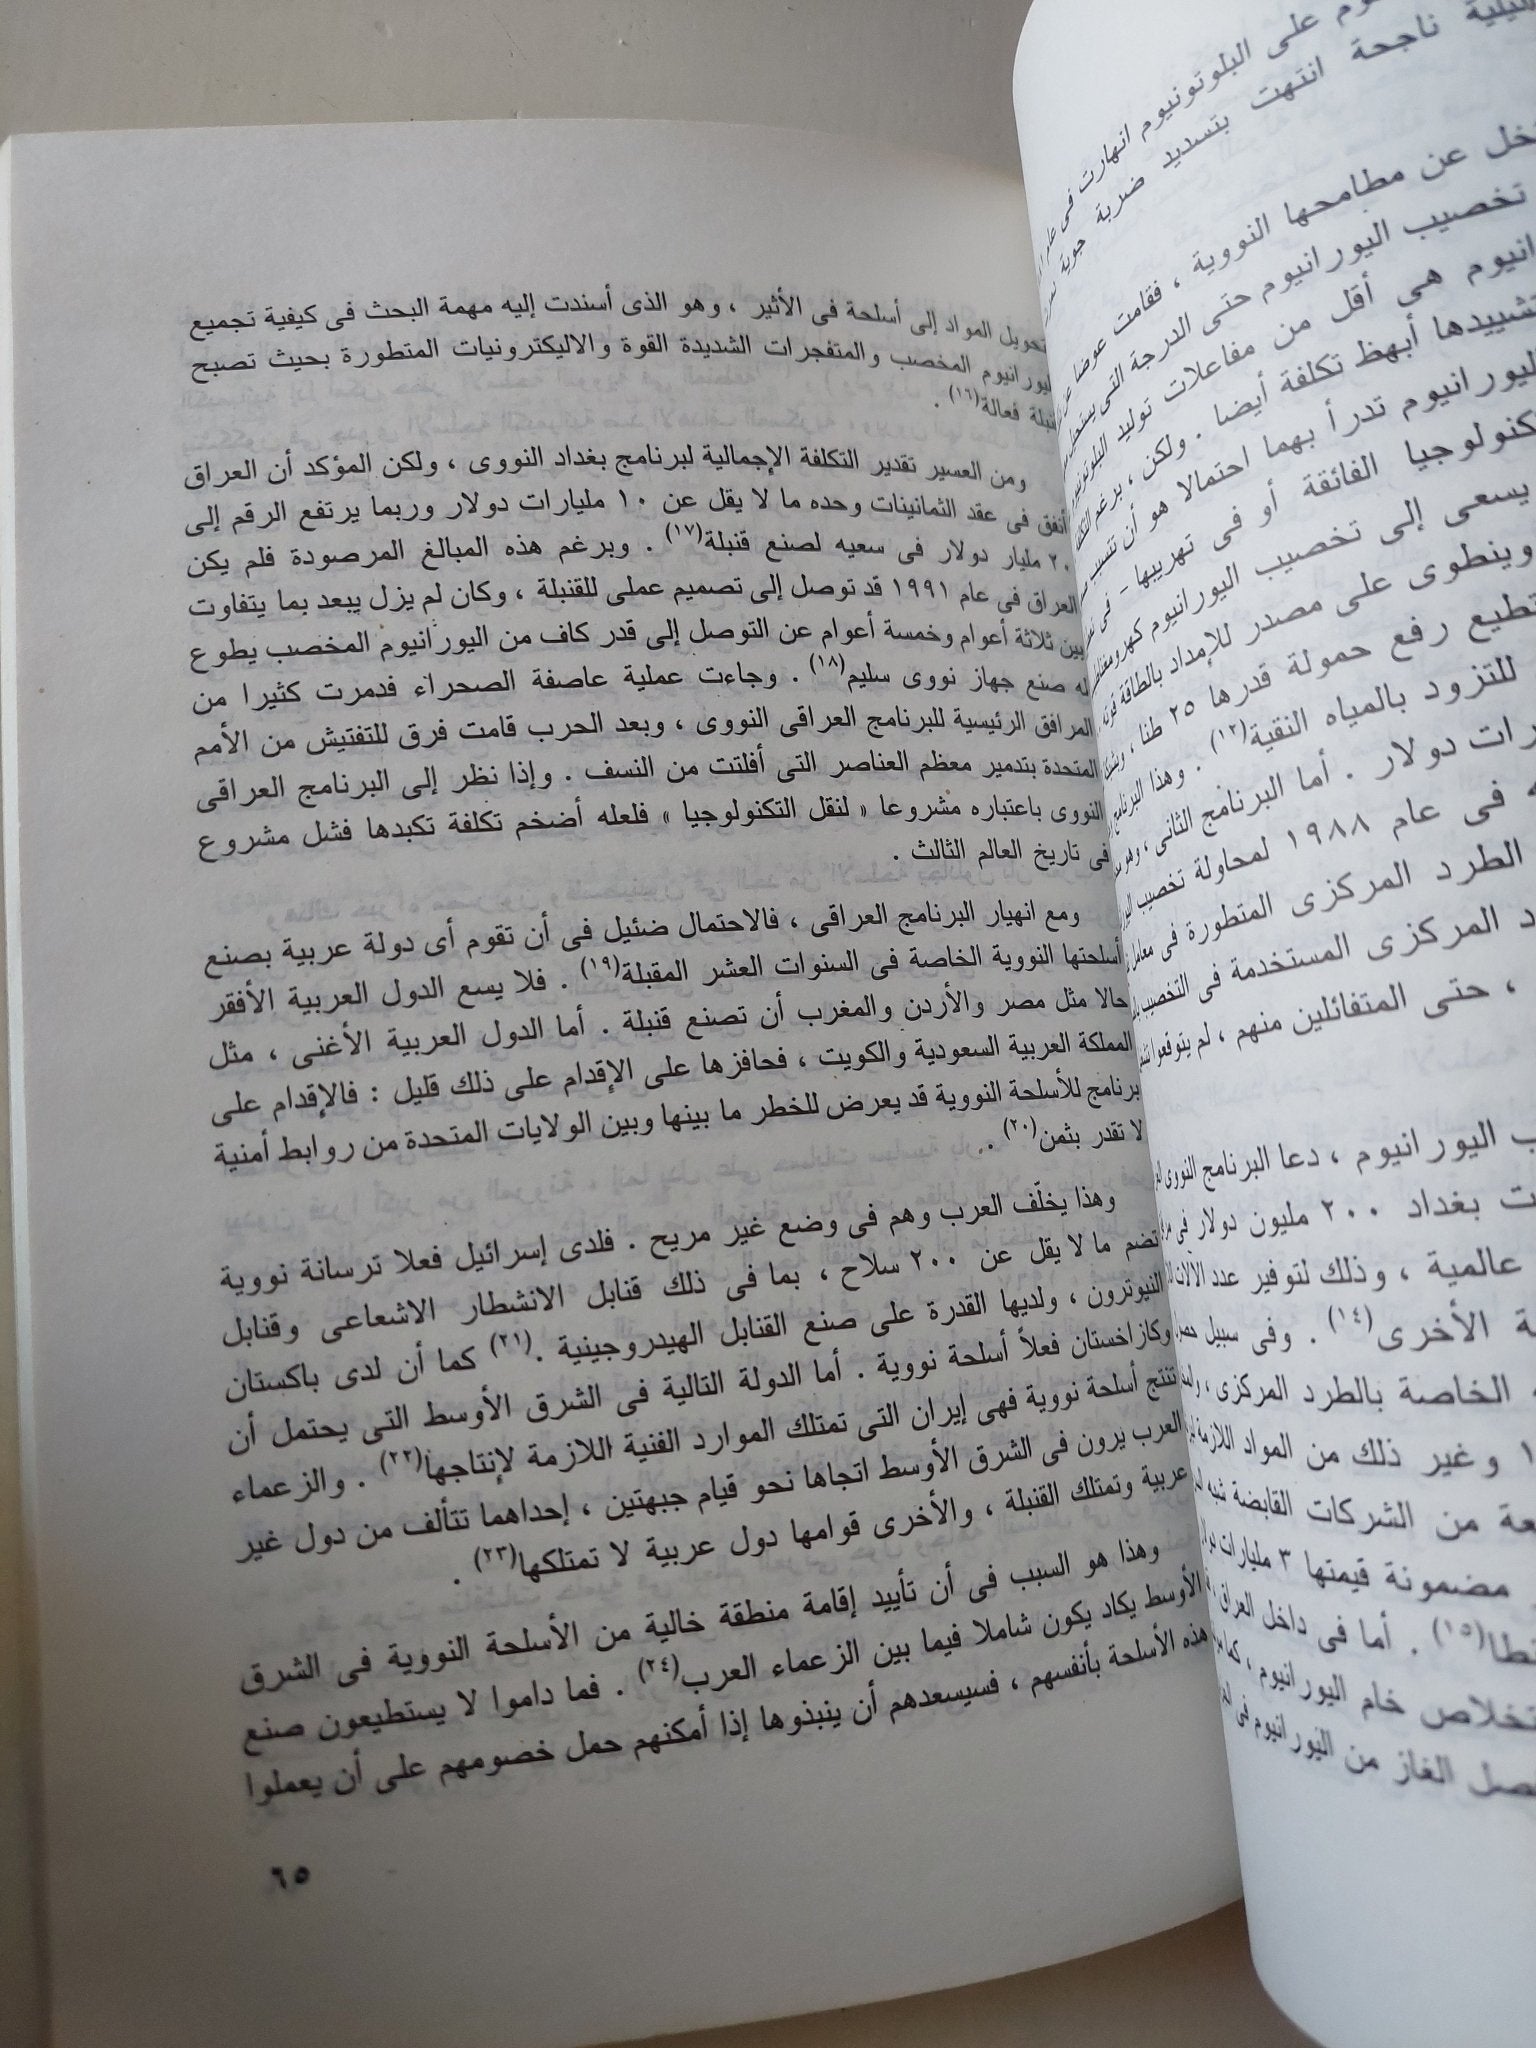 تحويل المواد إلى أسلحة فى الأثير ، وهو الذى أسندت إليه مهمة البحث فى كيفية تجميع
اليورانيوم المخصب والمتفجرات الشديدة القوة والاليكترونيات المتطورة بحيث تصبح
قنبلة فعالة(١٦) .
ومن العسير تقدير التكلفة الإجمالية لبرنامج بغداد النووى ، ولكن المؤكد أن العراق
أنفق فى عقد الثمانينات وحده ما لا يقل عن ١٠ مليارات دولار وربما يرتفع الرقم إلى
٢٠ مليار دولار فى سعيه لصنع قنبلة(١٧) . وبرغم هذه المبالغ المرصودة فلم يكن
العراق فى عام ١٩٩١ قد توصل إلى تصميم عملى للقنبلة ، وكان لم يزل يبعد بما يتفاوت
بين ثلاثة أعوام وخمسة أعوام عن التوصل إلى قدر كاف من اليورانيوم المخصب يطوع
له صنع جهاز نووى سليم(١٨) . وجاءت عملية عاصفة الصحراء فدمرت كثيرا من
المرافق الرئيسية للبرنامج العراقى النووى ، وبعد الحرب قامت فرق للتفتيش من الأمم
المتحدة بتدمير معظم العناصر التى أفلتت من النسف . وإذا نظر إلى البرنامج العراقى
النووى باعتباره مشروعا « لنقل التكنولوجيا » فلعله أضخم تكلفة تكبدها فشل مشروع
فى تاريخ العالم الثالث .
ومع انهيار البرنامج العراقى ، فالاحتمال ضئيل فى أن تقوم أى دولة عربية بصنع
أسلحتها النووية الخاصة فى السنوات العشر المقبلة(١٩) . فلا يسع الدول العربية الأفقر
حالا مثل مصر والأردن والمغرب أن تصنع قنبلة . أما الدول العربية الأغنى ، مثل
المملكة العربية السعودية والكويت ، فحافزها على الإقدام على ذلك قليل : فالإقدام على
برنامج للأسلحة النووية قد يعرض للخطر ما بينها وبين الولايات المتحدة من روابط أمنية
لا تقدر بثمن(٢٠) .
وهذا يخلّف العرب وهم فى وضع غير مريح . فلدى إسرائيل فعلا ترسانة نووية
تضم ما لا يقل عن ٢٠٠ سلاح ، بما فى ذلك قنابل الانشطار الاشعاعى وقنابل
النيوترون ، ولديها القدرة على صنع القنابل الهيدروجينية .(٢١) كما أن لدى باكستان
وكازاخستان فعلاً أسلحة نووية . أما الدولة التالية فى الشرق الأوسط التى يحتمل أن
تنتج أسلحة نووية فهى إيران التى تمتلك الموارد الفنية اللازمة لإنتاجها(٢٢) . والزعماء
العرب يرون فى الشرق الأوسط اتجاها نحو قيام جبهتين ، إحداهما تتألف من دول غير
عربية وتمتلك القنبلة ، والأخرى قوامها دول عربية لا تمتلكها(٢٣) .
وهذا هو السبب فى أن تأييد إقامة منطقة خالية من الأسلحة النووية فى الشرق
الأوسط يكاد يكون شاملا فيما بين الزعماء العرب(٢٤) . فما داموا لا يستطيعون صنع
هذه الأسلحة بأنفسهم ، فسيسعدهم أن ينبذوها إذا أمكنهم حمل خصومهم على أن يعملوا
٦٥
على البلوتونيوم انهارت فى
ناجحة انتهت بتسديد ضربة جوية
عن مطامحها النووية ، فقامت عوضا
تخصيب اليورانيوم حتى الدرجة التى
هى أقل من مفاعلات توليد
أبهظ تكلفة أيضا . ولكن ، برغم
تدرأ بهما احتمالا هو أن
الفائقة أو فى تهريبها - فى
يسعى إلى تخصيب اليورانيوم
وينطوى على مصدر للإمداد بالطاقة
رفع حمولة قدرها ٢٥ طنا ،
للتزود بالمياه النقية(١٢) . وهذا البرنامج
دولار . أما البرنامج الثانى ،
فى عام ١٩٨٨ لمحاولة تخصيب
الطرد المركزى المتطورة فى
المركزى المستخدمة فى التخصيب
، حتى المتفائلين منهم ، لم يتوقعوا
اليورانيوم ، دعا البرنامج النووى
بغداد ٢٠٠ مليون دولار فى
عالمية ، وذلك لتوفير عدد الآلات
الأخرى(١٤) . وفى سبيل
الخاصة بالطرد المركزى ،
وغير ذلك من المواد اللازمة
من الشركات القابضة شبه
مضمونة قيمتها ٣ مليارات
(١٥) . أما فى داخل العراق
خام اليورانيوم ، كما
الغاز من اليورانيوم فى